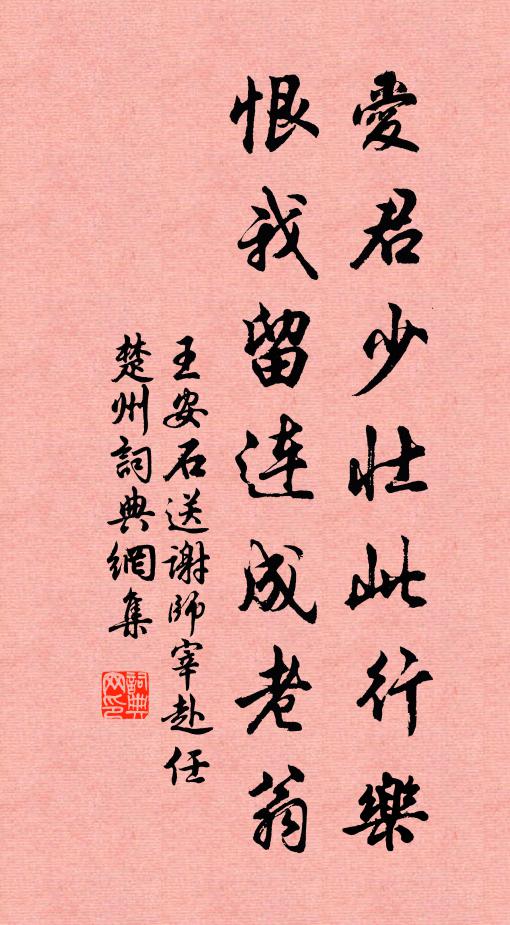 愛君少壯此行樂
恨我留連成老翁
王安石送謝師宰赴任
楚州詞典網集
詞典
网印